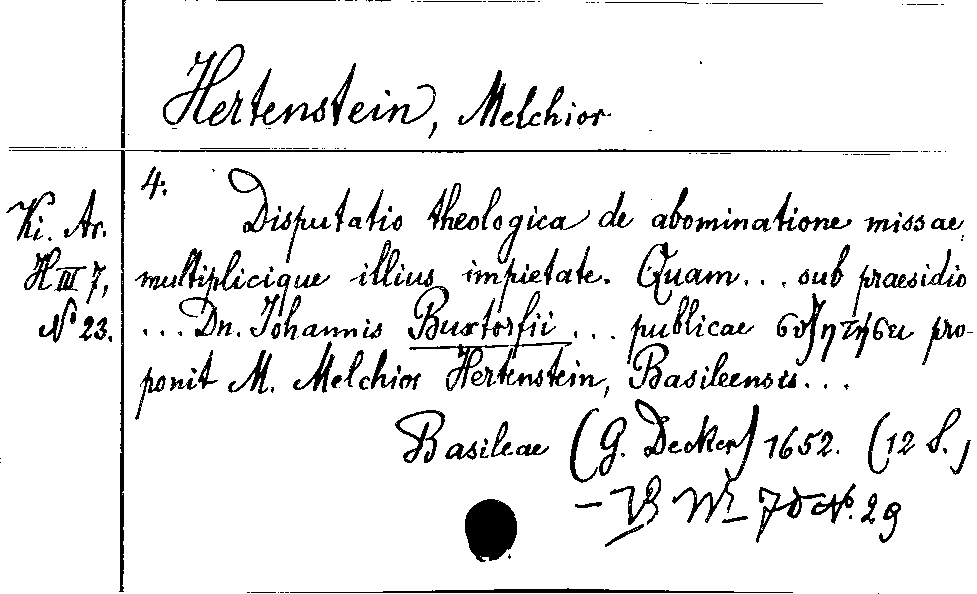 Hertenstein, Melchior
4:
Ki. Ar.
H III 7,
N° 23.
Disputatio theologica de abominatione missae,
multiplicique illius impietate. Quam... sub praesidio
... Dn. Johannis Buxtorfii ... publicae συζητήσει pro-
ponit M. Melchior Hertenstein, Basileensis...
Basileae (G. Decker) 1652. (12 S.)
N°. 29